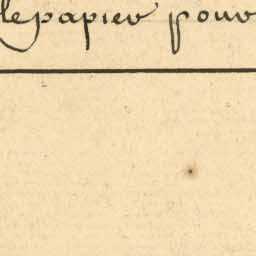 le papier pour